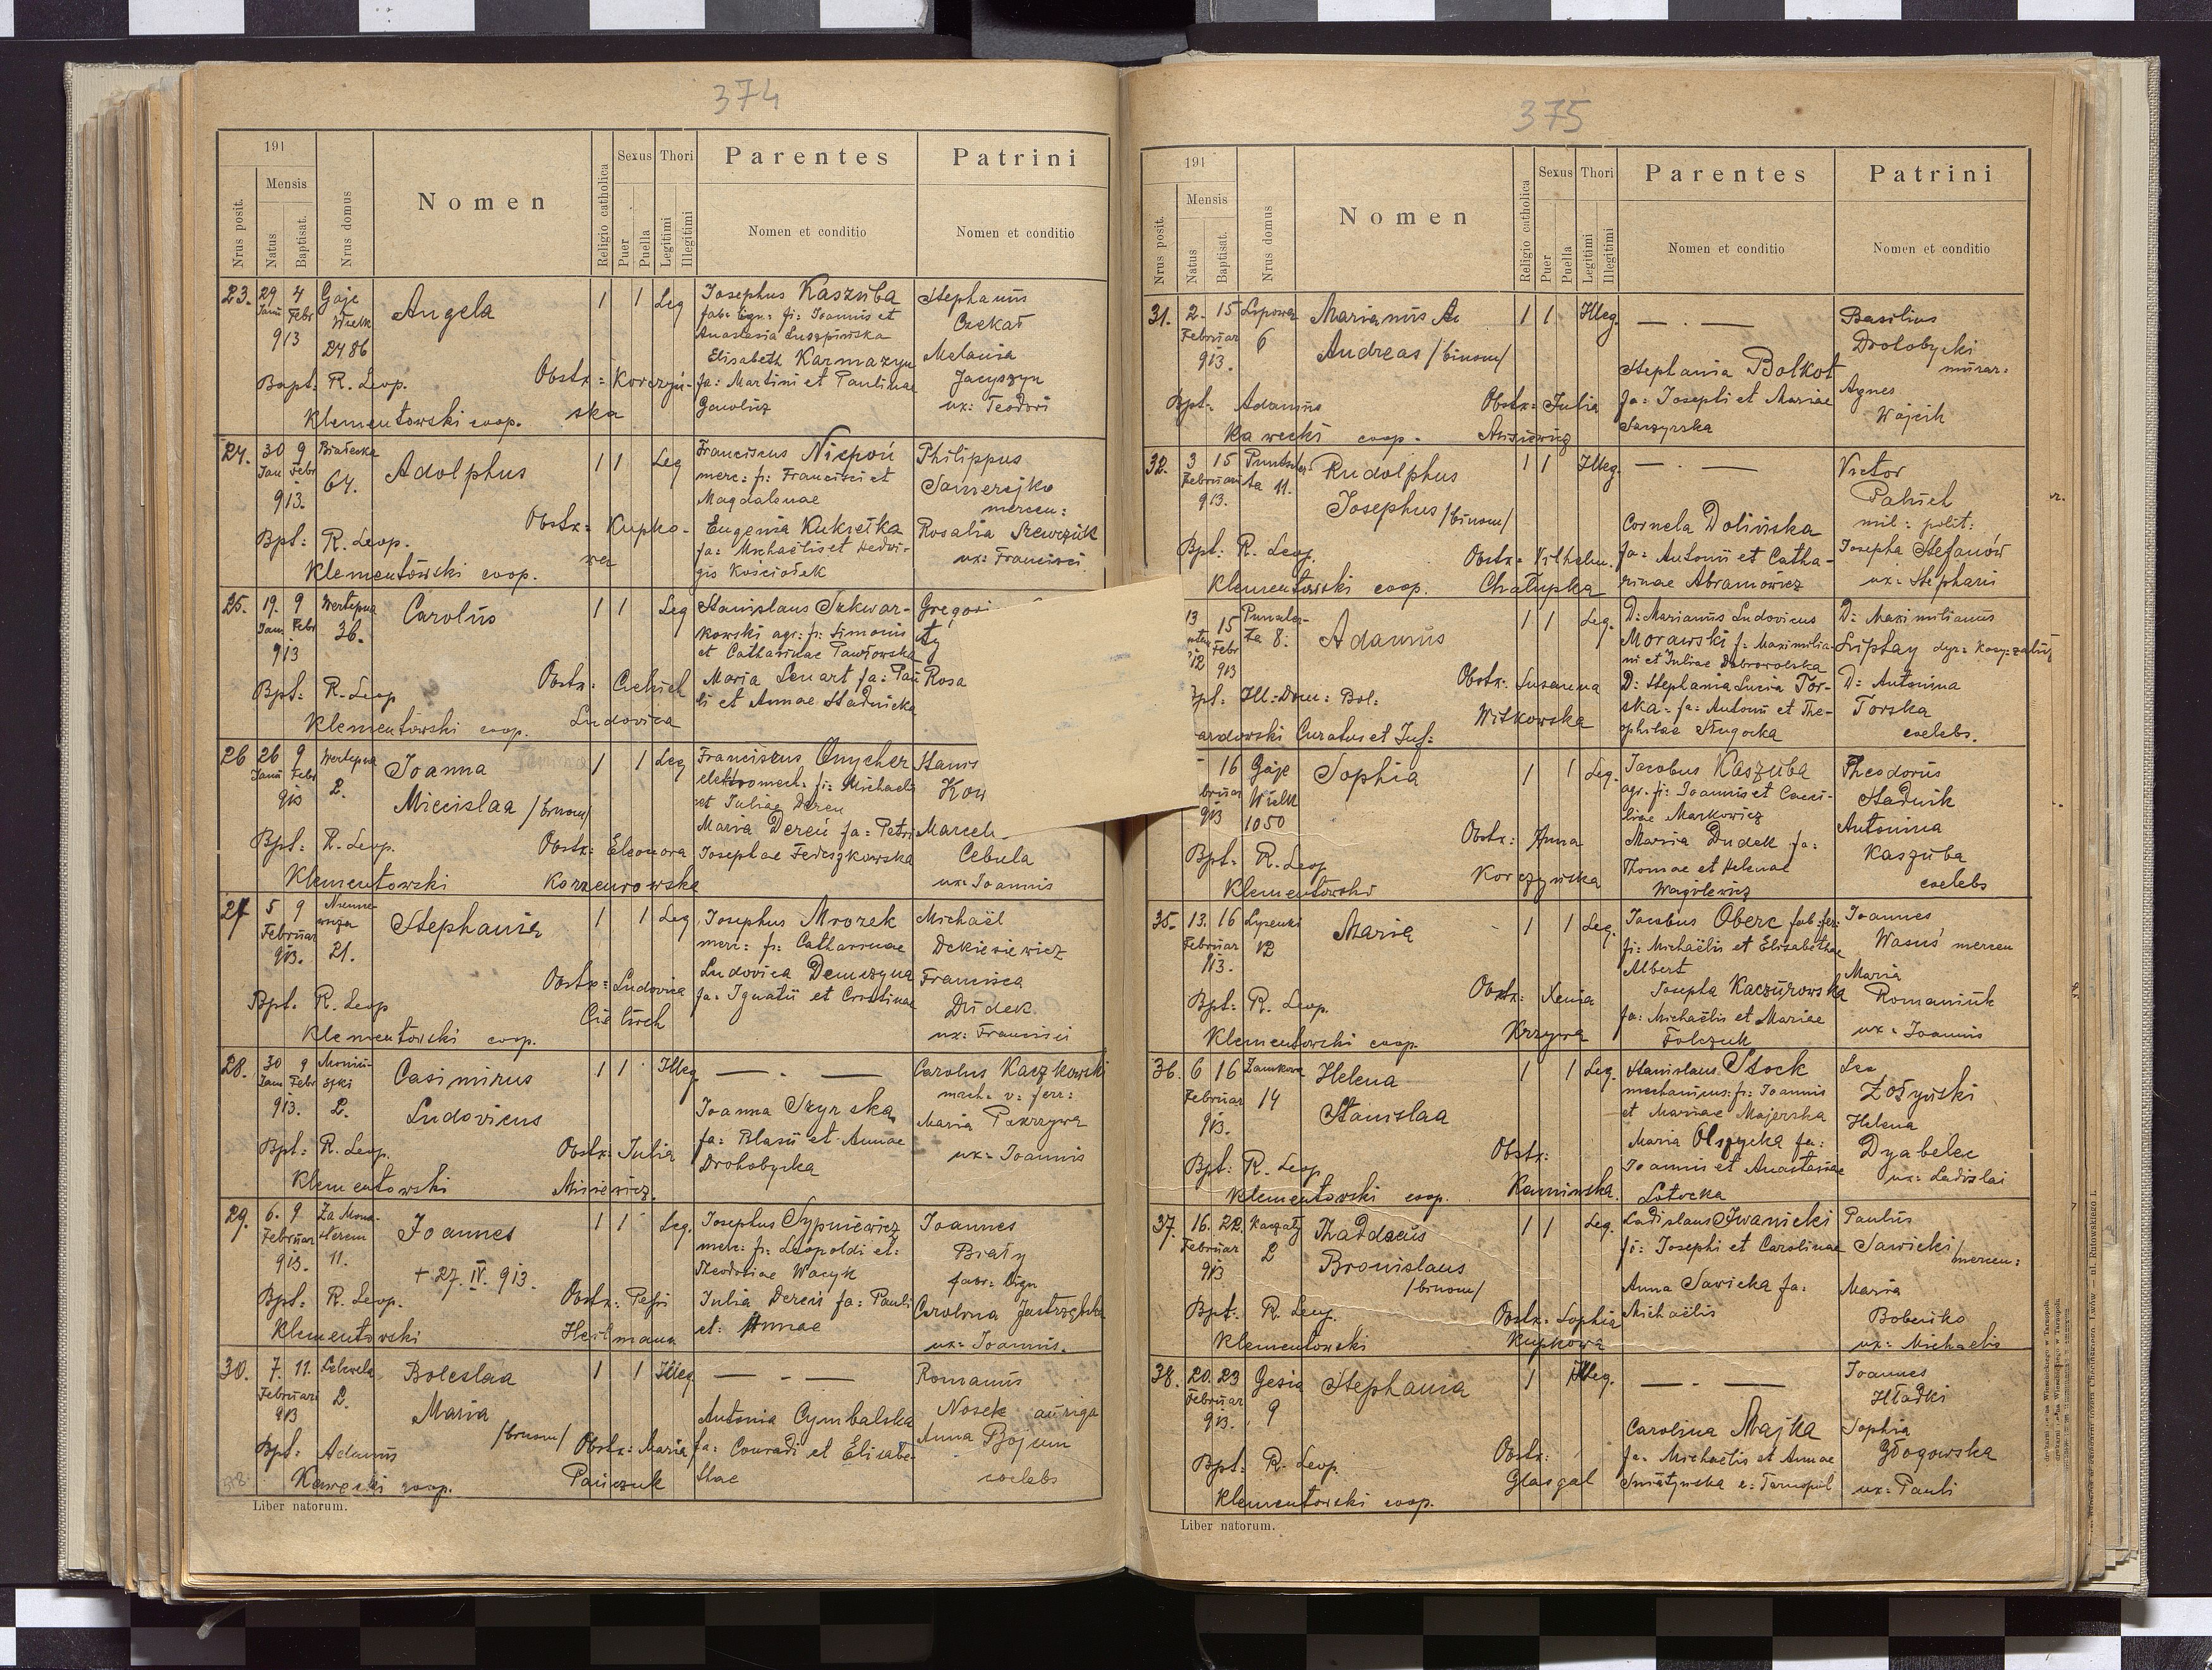 374
191
Mensis
Nrus posit.
Natus
Baptisat.
Nrus domus
Nomen
Religio catholica
Sexus
Puer
Puella
Thori
Legitimi
Illegitimi
Parentes
Nomen et conditio
Patrini
Nomen et conditio
23. 29 4 Gaje Angela 1 1 Leg Josephus Kaszuba Stephanus
Ianu Febr Wielk fab: lign: fi: Joannis et Czekał
913 2486 Anastasia
Elisabeth Karmazyn Melania
Bapt: R. Leop. Obstx: Korczyń- fa: Martini et Paulinae Jacyszyn
Klementowski coop. ska Gawlicz ux: Teodori
24. 30 9 Białecka Adolphus 1 1 Leg Franciscus Niepoń Philippus
Jan Febr 64. merc: fi: Francisci et Samerejko
913. Magdalenae mercen:
Obstx: Kupko- Eugenia Kukiełka Rosalia Szewczuk
Bpt: R. Leop. wa fa: Michaëlis et Hedwi- ux: Francisci
Klementowski coop. gis Kościołek
25. 19. 9 Wertepna Carolus 1 1 Leg Stanislaus Szkwar-
Janu Febr 36. kowski agr: fi: Simonis
913 et Catharinae Pawłowska
Obstx: Cieluch Maria Lenart fa: Pau Rosa
Bpt: R. Leop Ludovica li et Annae Stadnicka
Klementowski coop.
26 26 9 Wertepna Joanna 1 1 Leg Franciscus Onycher Stanis
Janu Febr 2. Miecislaa /binom/ elektromech. fi: Michaelis
913 et Juliae Dereń
Maria Dereń fa: Petri Marcela
Bpt: R. Leop. Obstx: Eleonora Josephae Fedeszkowska Cebula
Klementowski Korzeniowska ux: Joannis
27 5 9 Stephania 1 1 Leg Josephus Mrozek Michaël
Februar 21. merc: fi: Catharinae Dekiesiewicz
913. Ludovica Demczyna Francisca
Obstx: Ludovica fa: Ignatii et Cristinae Dudek
Bpt. R. Leop Cieluch ux: Francisci
Klementowski coop.
28. 30 9 Moniu- Casimirus 1 1 Illeg — . — Carolus Kaczkowski
Janu Febr szki Ludovicus mach. v: ferr:
913. 2. Joanna Szyrska Maria Pokrzywa
Bpt: R. Leop. Obstx: Julia fa: Blasii et Annae ux: Joannis
Klementowski Misiewicz. Drohobycka
29. 6. 9 Za Mona- Joannes 1 1 Leg. Josephus Sypniewicz Joannes
Februar sterem merc: fi: Leopoldi et: Biały
913. 11. + 27. IV. 913. Theodosiae Wacyk fabr: lign
Bpt: R. Leop. Obstx: Pepi Julia Dereń fa: Pauli Carolina Jastrzębska
Klementowski Heilmann et: Annae ux: Joannis.
30. 7. 11. Lelewela Boleslaa 1 1 Illeg — - — Romanus
Februar 2. Maria Nosek auriga
913 /binom/ Antonia Cymbalska Anna Bojun
Bpt: Adamus Obstx: Maria fa: Conradi et Elisabe- coelebs
Kawecki coop. Pańczuk thae
Liber natorum.
375
191
Mensis
Nrus posit.
Natus
Baptisat.
Nrus domus
Nomen
Religio catholica
Sexus
Puer
Puella
Thori
Legitimi
Illegitimi
Parentes
Nomen et conditio
Patrini
Nomen et conditio
31. 2. 15 Lipowa Marianus 1 1 Illeg. — . — Basilius
Februar 6 Andreas /binom/ Drohobycki
913. Stephania Bolkot murar:
Bpt. Adamus Obstx: Julia fa: Josephi et Mariae Agnes
Kawecki coop. Misiewicz Saczyrska Wojcik
32. 3 15 Puntscher- Rudolphus 1 1 Illeg. — . — Victor
Februari ta 11. Josephus /binom/ Paluch
913. mil: polit:
Cornela Dolińska
Bpt: R. Leop. Obstx: Vilhelm. fa: Antonii et Catha- Josepha Stefanów
Klementowski coop. Chałupka rinae Abramowicz ux: Stephani
13 15 Adamus 1 1 Leg. D: Marianus Ludovicus D: Maximilianus
Febr ta 8. Morawski f: Maximilia- Liptay
12 913 ni et Juliae Dobrowolska
Obstx: Susanna D: Stephania Lucia Tor- D: Antonina
Bpt: Ill: Dom: Bol: Witkowska ska: fa: Antonii et The- Torska
ardowski Curatus et Inf: ophilae Długocka coelebs.
16 Gaje Sophia 1 1 Leg. Jacobus Kaszuba Theodorus
bruar Wielk agr. fi: Joannis et Caeci- Stadnik
913 1050 liae Markowicz Antonina
Obstx: Anna Maria Dudek fa: Kaszuba
Bpt: R. Leop Korczyńska Thomae et Helenae coelebs
Klementowski Wagilewicz
35. 13. 16 Lysenki Maria 1 1 Leg. Jacobus Oberc fab: fer: Joannes
Februar 12 fi: Michaëlis et Elisabethae Wasuś mercen
913. Albert Maria
Obstx: Xenia Josepha Kaczurowska Romaniuk
Bpt: R. Leop. Krzywa fa: Michaëlis et Mariae ux: Joannis
Klementowski coop. Tolczuk
36. 6 16 Zamkowa Helena 1 1 Leg. Stanislaus Stock Leo
Februar 14 Stanislaa mechanicus: fi: Joannis Zożyński
913. et Mariae Majerska Helena
Obstx: Maria Olszycka fa: Dyabelec
Bpt: R. Leop Kaminska. Joannis et Anastasiae ux: Ladislai
Klementowski coop. Lotocka
37. 16. 22. Thaddaeus 1 1 Leg. Ladislaus Iwanicki Paulus
Februar 2 Bronislaus fi: Josephi et Carolinae Sawicki /mercen:
913 /binom/ Anna Sawicka fa: Maria
Bpt. R. Leop. Obstx: Sophia Michaëlis Bobeńko
Klementowski Kupkowa ux: Michaelis
38. 20. 23 Gesia Stephania 1 Illeg. — . — Joannes
Februar 9 Hładki
913. Carolina Majka Sophia
Obstx: fa: Michaëlis et Annae Głogowska
Bpt: R. Leop. Glasgal Sniatynska e: Tarnopol ux: Pauli
Klementowski coop.
Liber natorum.